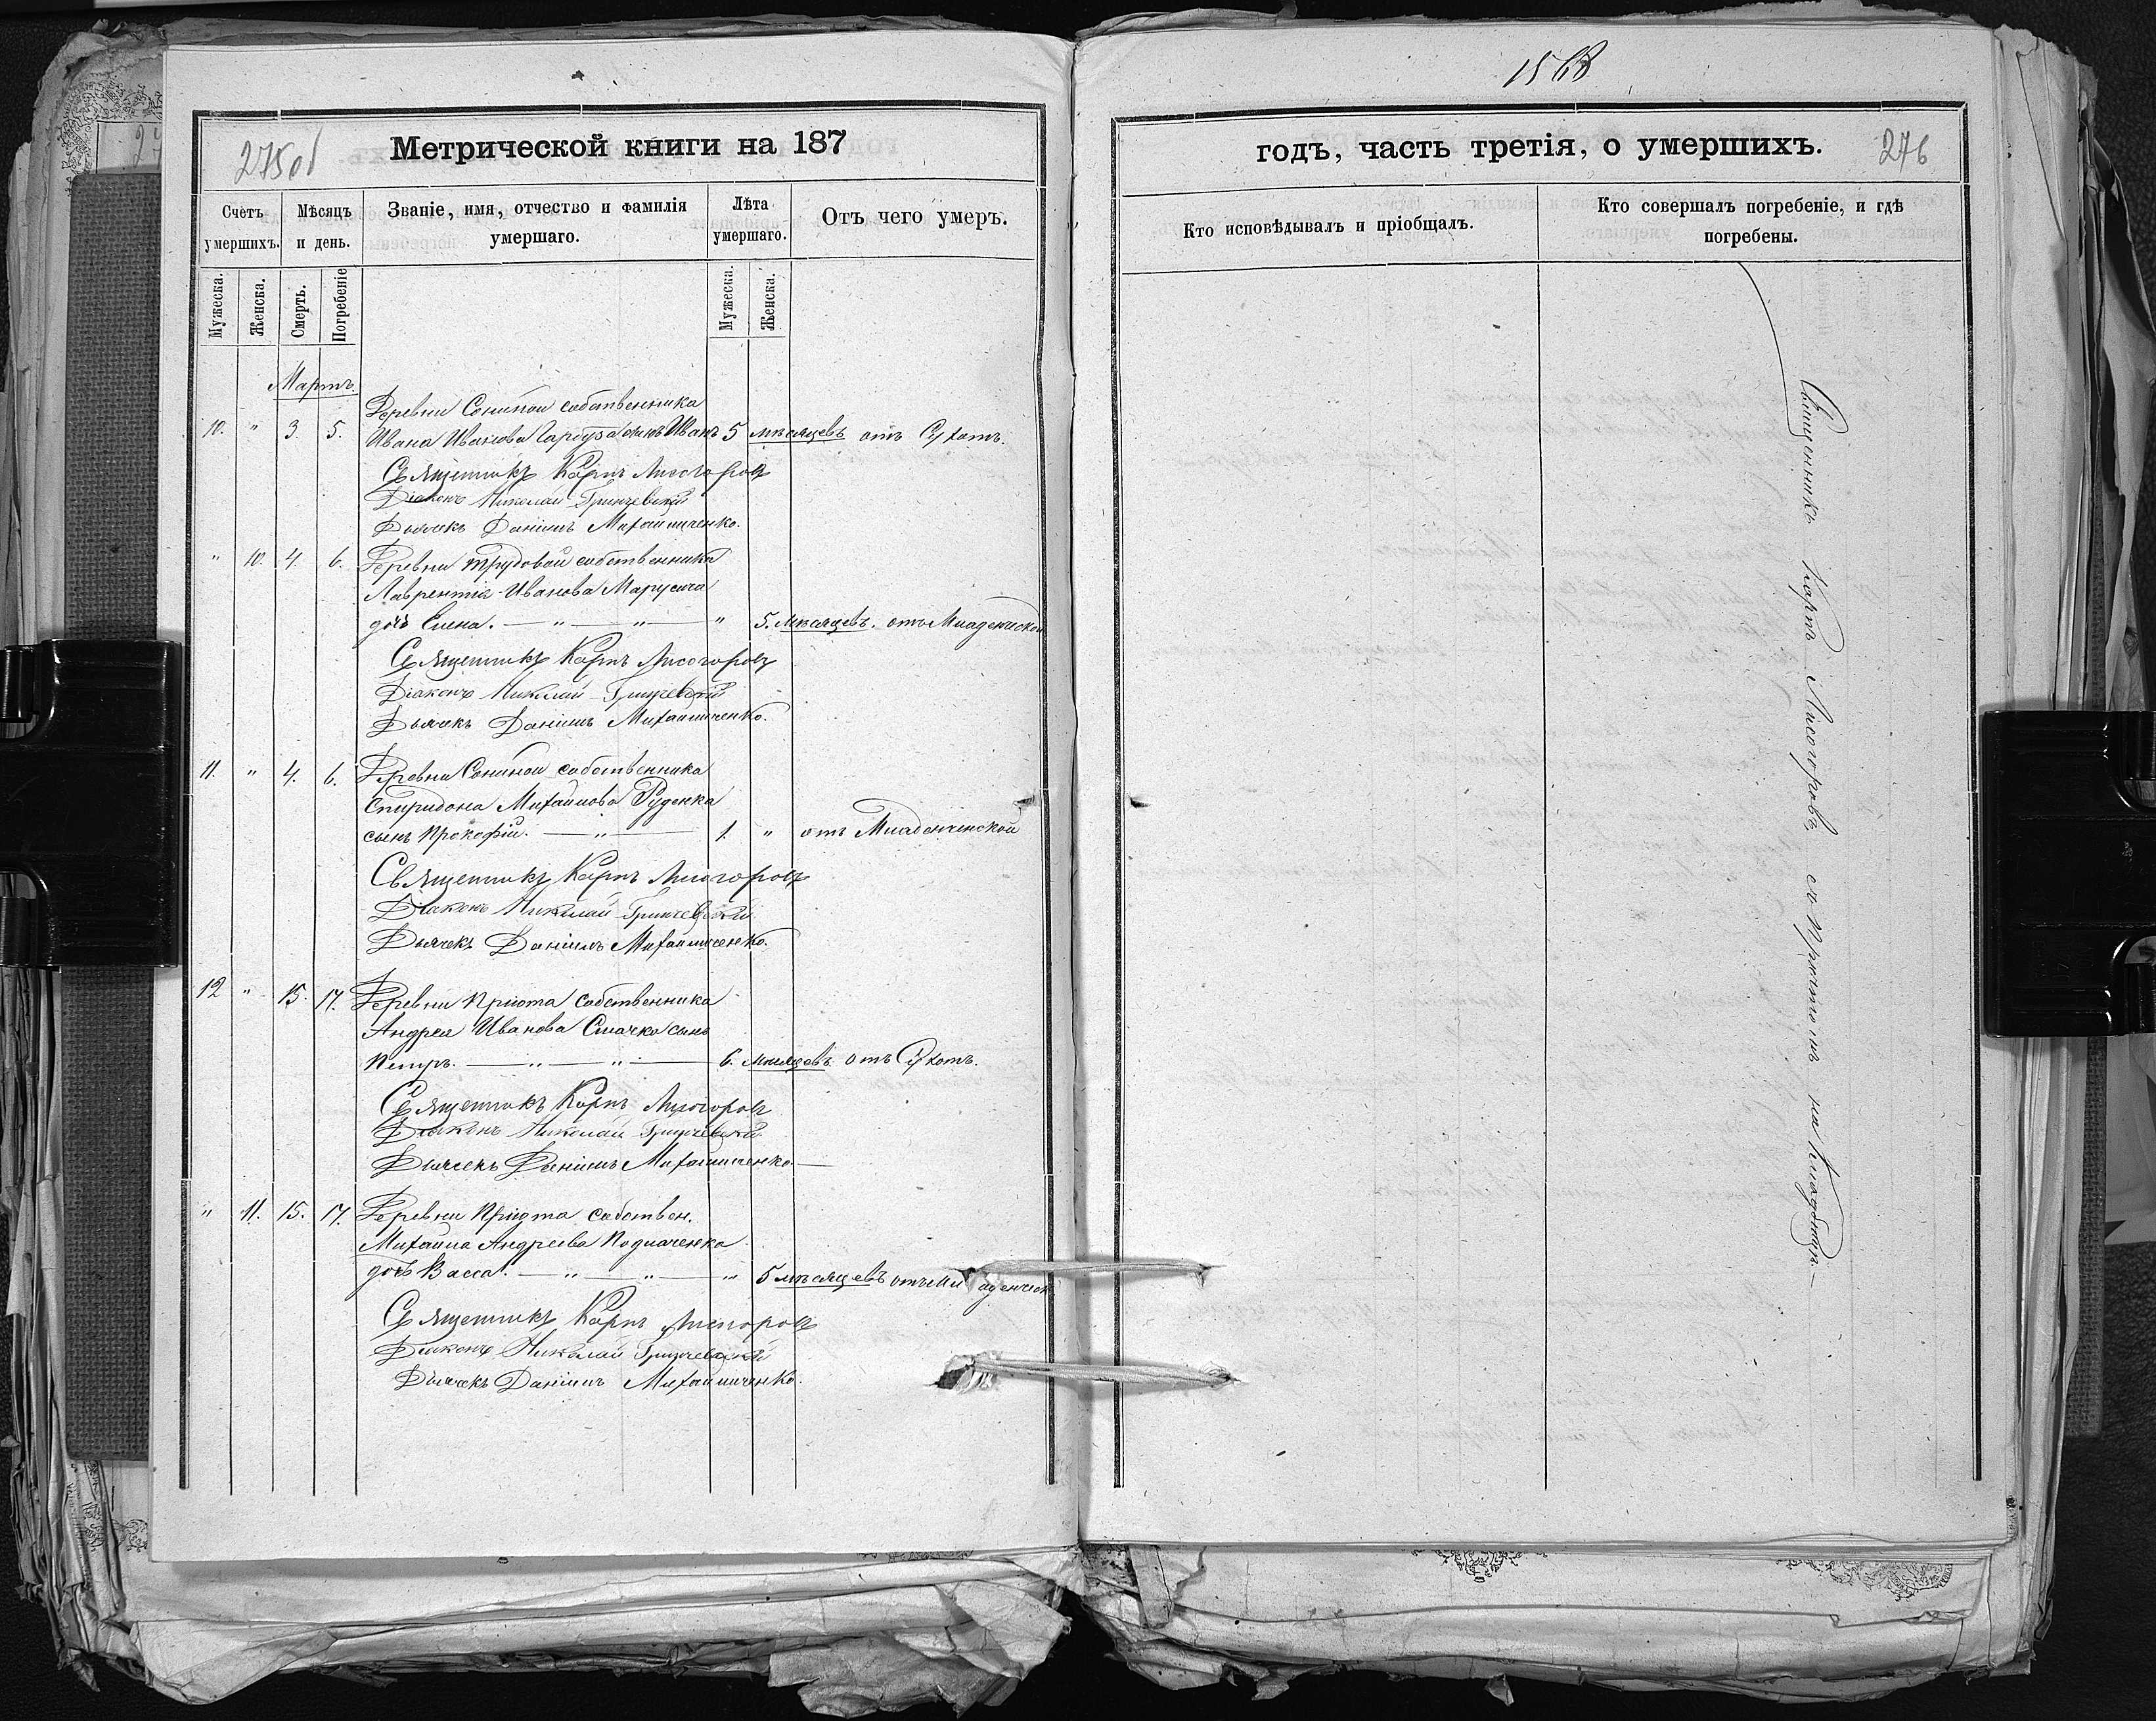 275об
Метрической книги на 187
Счетъ умершихъ.
Мѣсяцъ и день.
Званіе, имя, отчество и фамилія умершаго.
Лѣта умершаго.
Отъ чего умеръ.
Мужеска.
Женска.
Смерть.
Погребеніе
Мужеска.
Женска.
Мартъ.
Деревни Сониной собственника
10. " 3. 5. Ивана Иванова сынъ Иванъ 5 мѣсяцевъ отъ Сухотъ.
Священникъ Карпъ Лисогоровъ
Діаконъ Николай Гринчевскій
Дьячекъ Даніилъ Михайличенко.
" 10. 4. 6. Деревни Трудовой собственника
Лаврентія Иванова Марусича
дочь Елена. — " — " — " 5. мѣсяцевъ. отъ Младенческой
Священникъ Карпъ Лисогоровъ
Діаконъ Николай Гринчевскій
Дьячекъ Даніилъ Михайличенко.
11. " 4. 6. Деревни Сониной собственника
Спиридона Михайлова Руденка
сынъ Прокофій. — " — 1. " отъ Младенченской
Священникъ Карпъ Лисогоровъ
Діаконъ Николай Гринчевскій
Дьячекъ Даніилъ Михайличенко.
12 " 15. 17. Деревни Пріюта собственника
Андрея Иванова Смачко сынъ
Петръ. — " — " — 6. мѣсяцевъ отъ Сухотъ.
Священникъ Карпъ Лисогоровъ
Діаконъ Николай Гринчевскій
Дьячекъ Даніилъ Михайличенко. —
" 11. 15. 17. Деревни Пріюта собствен.
Михаила Андреева
дочь Васса. — " — " — " 5 мѣсяцевъ отъ Младенческ
Священникъ Карпъ Лисогоровъ
Діаконъ Николай Гринчевскій
Дьячекъ Даніилъ Михайличенко.
1568
годъ, часть третія, о умершихъ.
276
Кто исповѣдывалъ и пріобщалъ.
Кто совершалъ погребеніе, и гдѣ погребены.
Священникъ Карпъ Лисогоровъ, съ Причтомъ на Кладбищѣ —